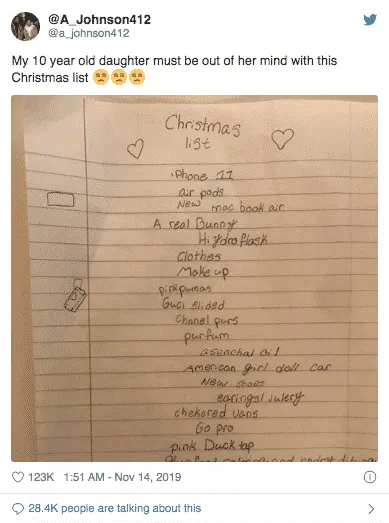 @A_Johnson412
@a_johnson412
My 10 year old daughter must be out of her mind with this
Christmas list 😒😒😒
Christmas
list
iPhone 11
air pods
New mac book air
A real Bunny
Hydro flask
Clothes
Make up
pink pumas
Guci slided
Chanel purs
purfum
asenchal oil
American girl doll car
New shoes
earings/ julery
chekered vans
Go pro
pink Duck tap
123K 1:51 AM - Nov 14, 2019
28.4K people are talking about this